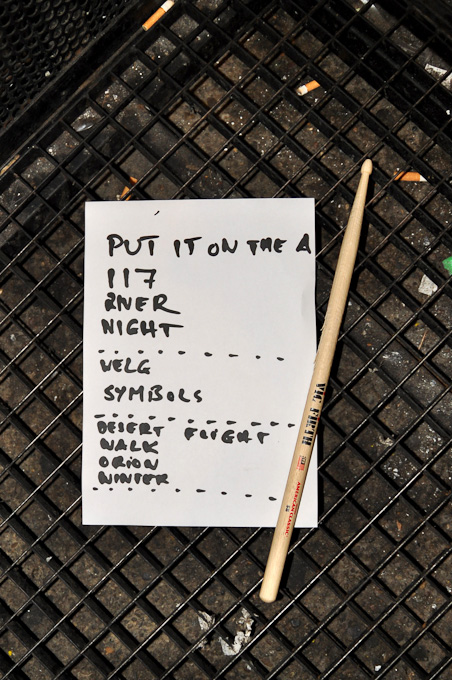 PUT IT ON THE A
117
RNER
NIGHT
VELG
SYMBOLS
DESERT FLIGHT
WALK
ORION
WINTER
VIC FIRTH
AMERICAN CLASSIC